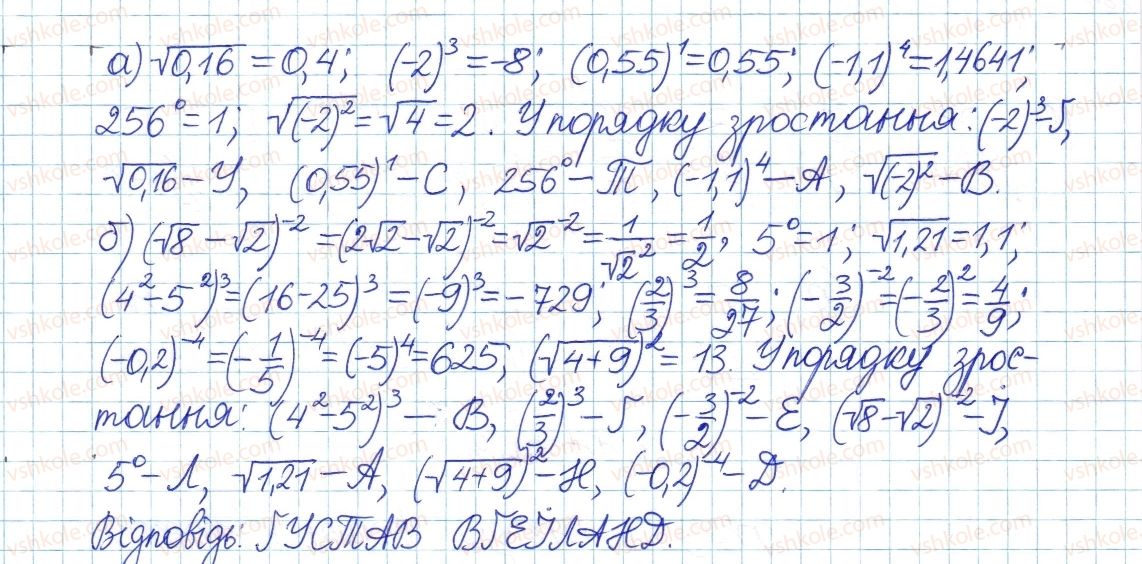 а) √0,16 = 0,4; (-2)³ = -8; (0,55)¹ = 0,55; (-1,1)⁴ = 1,4641;
256⁰ = 1; √(-2)² = √4 = 2. У порядку зростання: (-2)³ - Ґ,
√0,16 - У, (0,55)¹ - С, 256⁰ - Т, (-1,1)⁴ - А, √(-2)² - В.
б) (√8 - √2)⁻² = (2√2 - √2)⁻² = √2⁻² = 1/√2² = 1/2, 5⁰ = 1; √1,21 = 1,1;
(4² - 5²)³ = (16 - 25)³ = (-9)³ = -729; (2/3)³ = 8/27; (-3/2)⁻² = (-2/3)² = 4/9;
(-0,2)⁻⁴ = (-1/5)⁻⁴ = (-5)⁴ = 625; (√4+9)² = 13. У порядку зрос-
тання: (4² - 5²)³ - В, (2/3)³ - Ґ, (-3/2)⁻² - Е, (√8 - √2)⁻² - Ї,
5⁰ - Л, √1,21 - А, (√4+9)² - Н, (-0,2)⁻⁴ - Д.
Відповідь: ҐУСТАВ ВҐЕЇЛАНД.